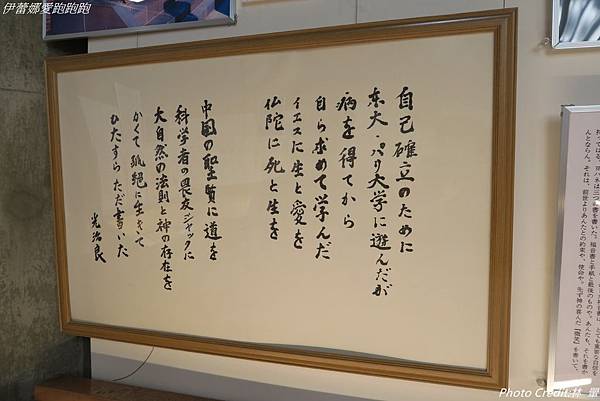 伊蕾娜愛跑跑跑
自己確立のために
東大・パリ大学に遊んだが
病を得てから
自ら求めて学んだ
イエスに生と愛を
仏陀に死と生を
中国の聖賢に道を
科学者の畏友ジャックに
大自然の法則と神の存在を
かくて孤絶に生きて
ひたすらただ書いた
光治良
Photo Credit:林